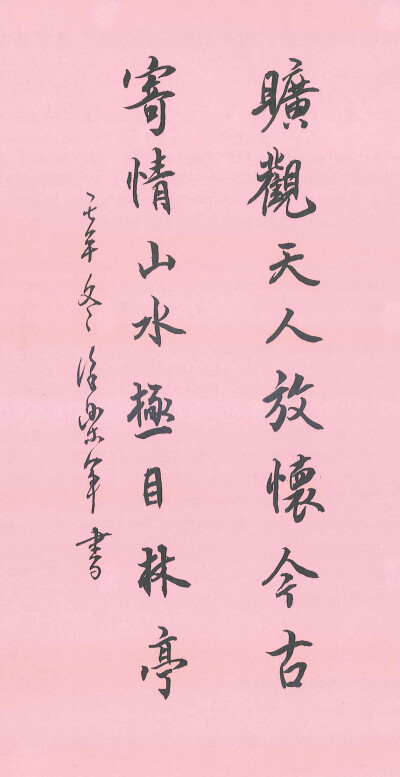 曠觀天人放懷今古
寄情山水極目林亭
年冬徐榮年書